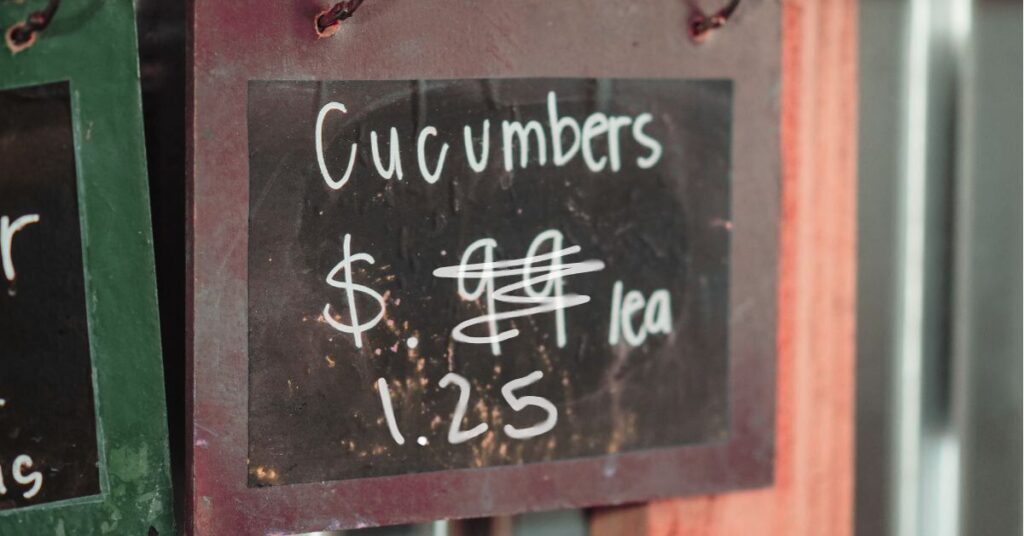 r
s
Cucumbers
$ .99 /ea
1.25